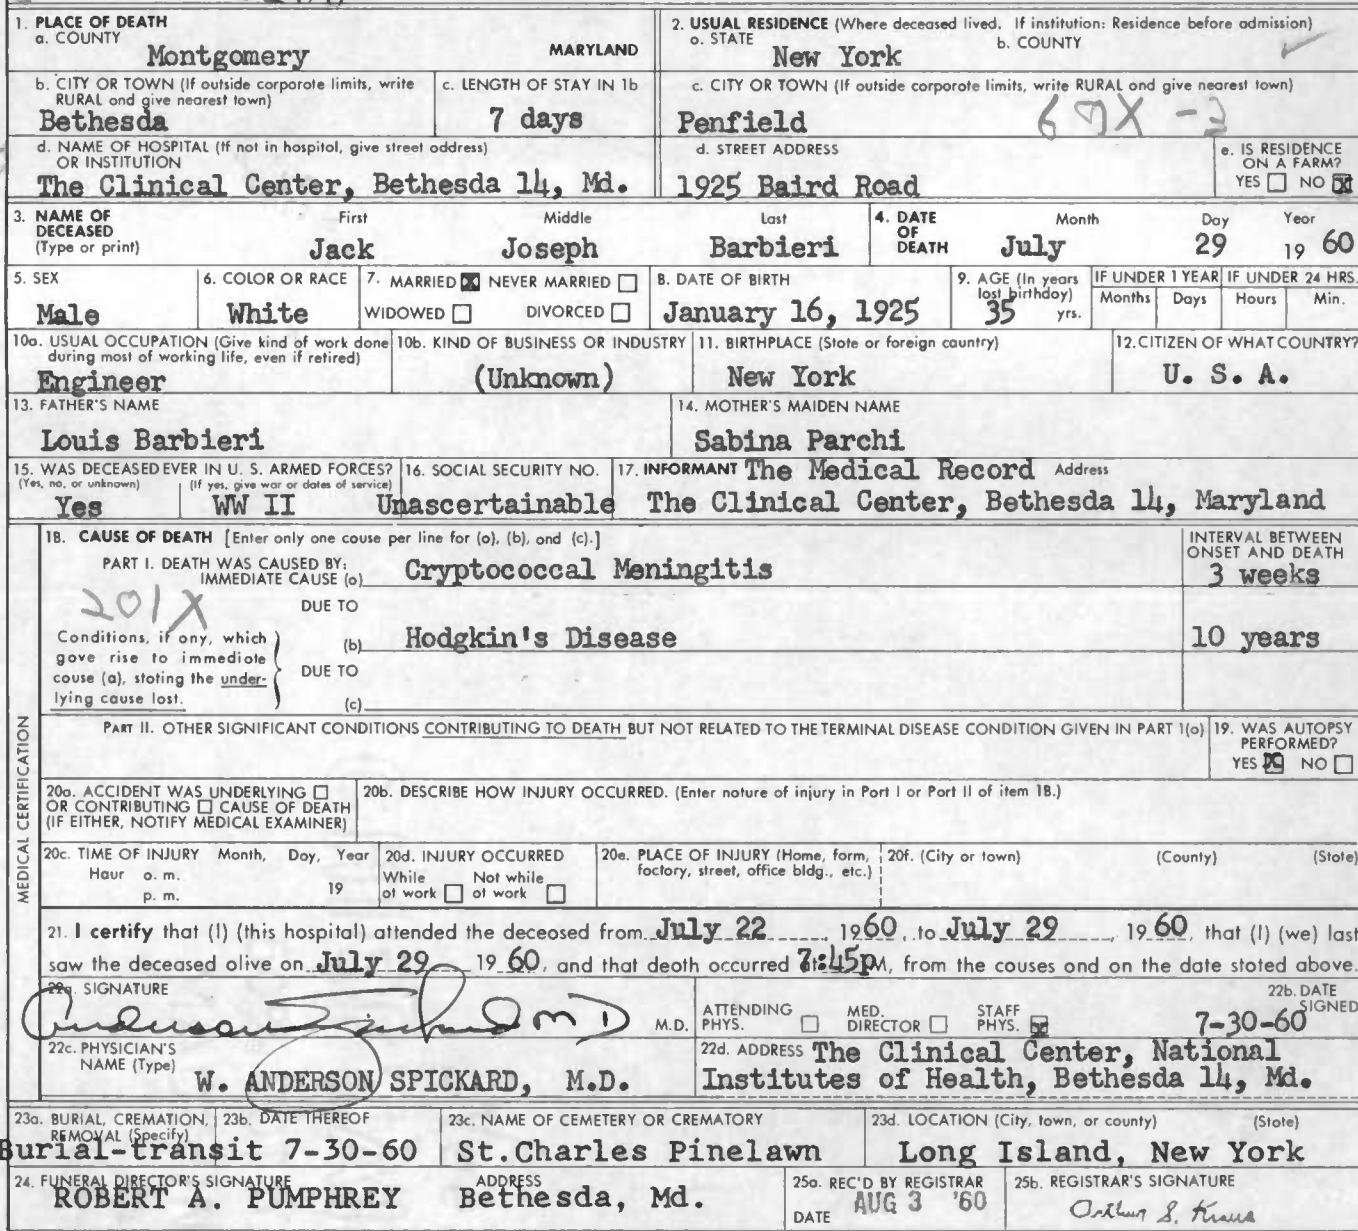 1. PLACE OF DEATH
a. COUNTY
Montgomery MARYLAND
2. USUAL RESIDENCE (Where deceased lived. If institution: Residence before admission)
a. STATE b. COUNTY
New York
b. CITY OR TOWN (If outside corporate limits, write RURAL and give nearest town)
Bethesda
c. LENGTH OF STAY IN 1b
7 days
c. CITY OR TOWN (If outside corporate limits, write RURAL and give nearest town)
Penfield
d. NAME OF HOSPITAL (If not in hospital, give street address)
OR INSTITUTION
The Clinical Center, Bethesda 14, Md.
d. STREET ADDRESS
1925 Baird Road
e. IS RESIDENCE
ON A FARM?
YES NO
3. NAME OF DECEASED (Type or print)
First Middle Last
Jack Joseph Barbieri
4. DATE OF DEATH
Month Day Year
July 29 19 60
5. SEX
Male
6. COLOR OR RACE
White
7. MARRIED NEVER MARRIED
WIDOWED DIVORCED
8. DATE OF BIRTH
January 16, 1925
9. AGE (In years last birthday)
35 yrs.
IF UNDER 1 YEAR IF UNDER 24 HRS.
Months Days Hours Min.
10a. USUAL OCCUPATION (Give kind of work done during most of working life, even if retired)
Engineer
10b. KIND OF BUSINESS OR INDUSTRY
(Unknown)
11. BIRTHPLACE (State or foreign country)
New York
12. CITIZEN OF WHAT COUNTRY?
U. S. A.
13. FATHER'S NAME
Louis Barbieri
14. MOTHER'S MAIDEN NAME
Sabina Parchi
15. WAS DECEASED EVER IN U. S. ARMED FORCES?
(Yes, no, or unknown) (If yes, give war or dates of service)
Yes WW II
16. SOCIAL SECURITY NO.
Unascertainable
17. INFORMANT The Medical Record Address
The Clinical Center, Bethesda 14, Maryland
MEDICAL CERTIFICATION
18. CAUSE OF DEATH [Enter only one cause per line for (a), (b), and (c).]
INTERVAL BETWEEN
ONSET AND DEATH
PART I. DEATH WAS CAUSED BY:
IMMEDIATE CAUSE (a) Cryptococcal Meningitis 3 weeks
201X
DUE TO
Conditions, if any, which gave rise to immediate cause (a), stating the underlying cause last.
(b) Hodgkin's Disease 10 years
DUE TO
(c)
PART II. OTHER SIGNIFICANT CONDITIONS CONTRIBUTING TO DEATH BUT NOT RELATED TO THE TERMINAL DISEASE CONDITION GIVEN IN PART 1(a)
19. WAS AUTOPSY
PERFORMED?
YES NO
20a. ACCIDENT WAS UNDERLYING
OR CONTRIBUTING CAUSE OF DEATH
(IF EITHER, NOTIFY MEDICAL EXAMINER)
20b. DESCRIBE HOW INJURY OCCURRED. (Enter nature of injury in Part I or Part II of item 18.)
20c. TIME OF INJURY Month, Day, Year
Hour a. m.
p. m. 19
20d. INJURY OCCURRED
While at work Not while at work
20e. PLACE OF INJURY (Home, farm, factory, street, office bldg., etc.)
20f. (City or town) (County) (State)
21. I certify that (I) (this hospital) attended the deceased from July 22 1960, to July 29, 19 60, that (I) (we) last
saw the deceased alive on July 29 19 60, and that death occurred 7:45pM, from the causes and on the date stated above.
22a. SIGNATURE
Anderson Spickard MD M.D.
ATTENDING PHYS. MED. DIRECTOR STAFF PHYS.
22b. DATE SIGNED
7-30-60
22c. PHYSICIAN'S NAME (Type)
W. ANDERSON SPICKARD, M.D.
22d. ADDRESS The Clinical Center, National
Institutes of Health, Bethesda 14, Md.
23a. BURIAL, CREMATION, REMOVAL (Specify)
Burial-transit
23b. DATE THEREOF
7-30-60
23c. NAME OF CEMETERY OR CREMATORY
St.Charles Pinelawn
23d. LOCATION (City, town, or county) (State)
Long Island, New York
24. FUNERAL DIRECTOR'S SIGNATURE ADDRESS
ROBERT A. PUMPHREY Bethesda, Md.
25a. REC'D BY REGISTRAR
DATE AUG 3 '60
25b. REGISTRAR'S SIGNATURE
Arthur S. Kraus